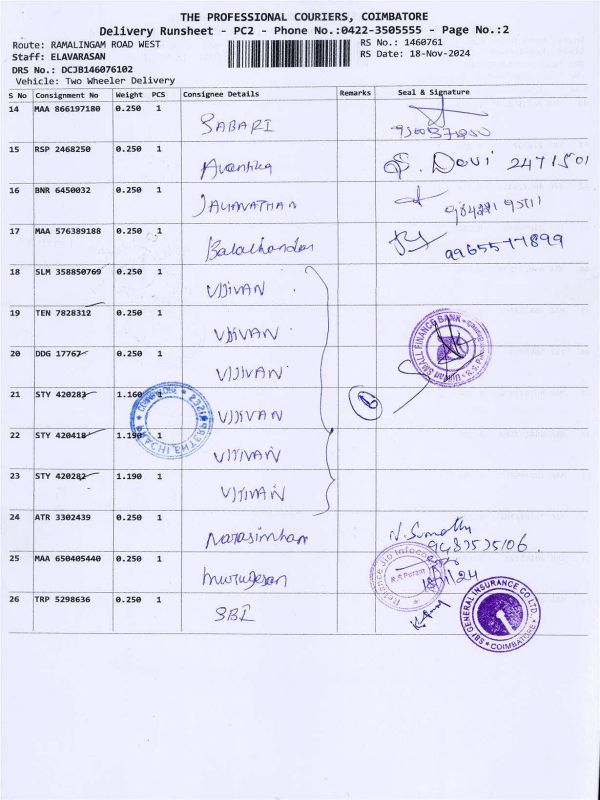 THE PROFESSIONAL COURIERS, COIMBATORE
Delivery Runsheet - PC2 - Phone No.:0422-3505555 - Page No.:2
Route: RAMALINGAM ROAD WEST RS No.: 1460761
Staff: ELAVARASAN RS Date: 18-Nov-2024
DRS No.: DCJB146076102
Vehicle: Two Wheeler Delivery
S No Consignment No Weight PCS Consignee Details Remarks Seal & Signature
14 MAA 866197180 0.250 1 SABARI
15 RSP 2468250 0.250 1 Avantika Devi 2471501
16 BNR 6450032 0.250 1
17 MAA 576389188 0.250 1 Balachander 9965577899
18 SLM 358850769 0.250 1 UJJIVAN
19 TEN 7828312 0.250 1 UJJIVAN
20 DDG 17767 0.250 1 UJJIVAN
UJJIVAN SMALL FINANCE BANK
21 STY 420283 1.160 1 UJJIVAN 6
22 STY 420418 1.190 1 UJJIVAN
23 STY 420282 1.190 1 UJJIVAN
24 ATR 3302439 0.250 1 Narasimhan N. Sumathi
9487575106.
25 MAA 650405440 0.250 1 murugesan
Reliance Jio Infoco
R.S Puram
18/11/24
26 TRP 5298636 0.250 1 SBI
SBI GENERAL INSURANCE CO LTD.
COIMBATORE